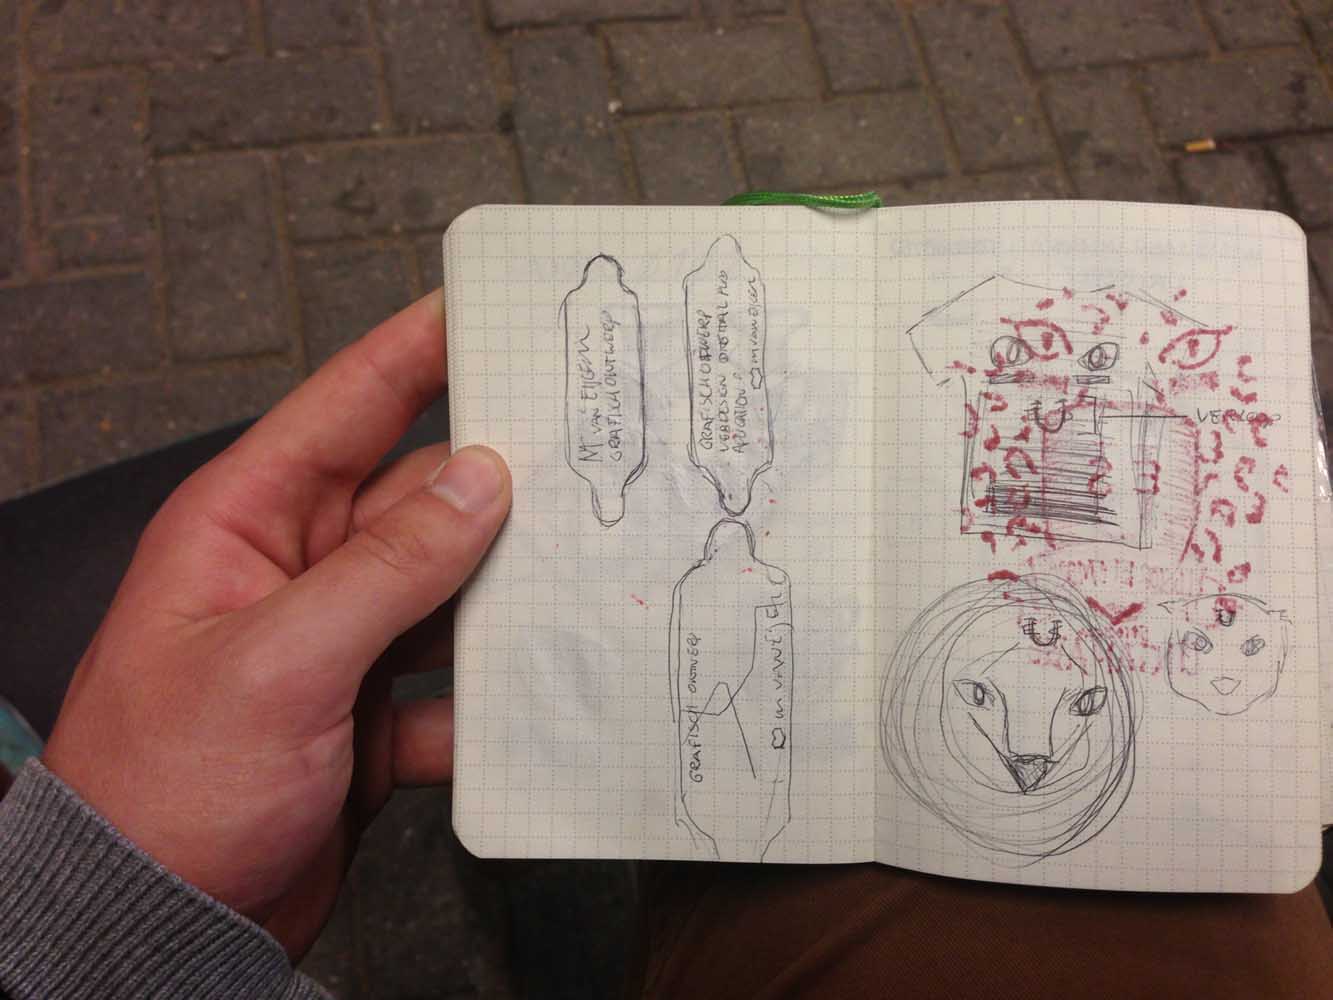 M van EIJGEN
GRAFISCH ONTWERP
GRAFISCH ONTWERP
WEBDESIGN DIGITAL PUB
APLICATION
m van eijgen
GRAFISCH ONTWERP
m vanEijgen